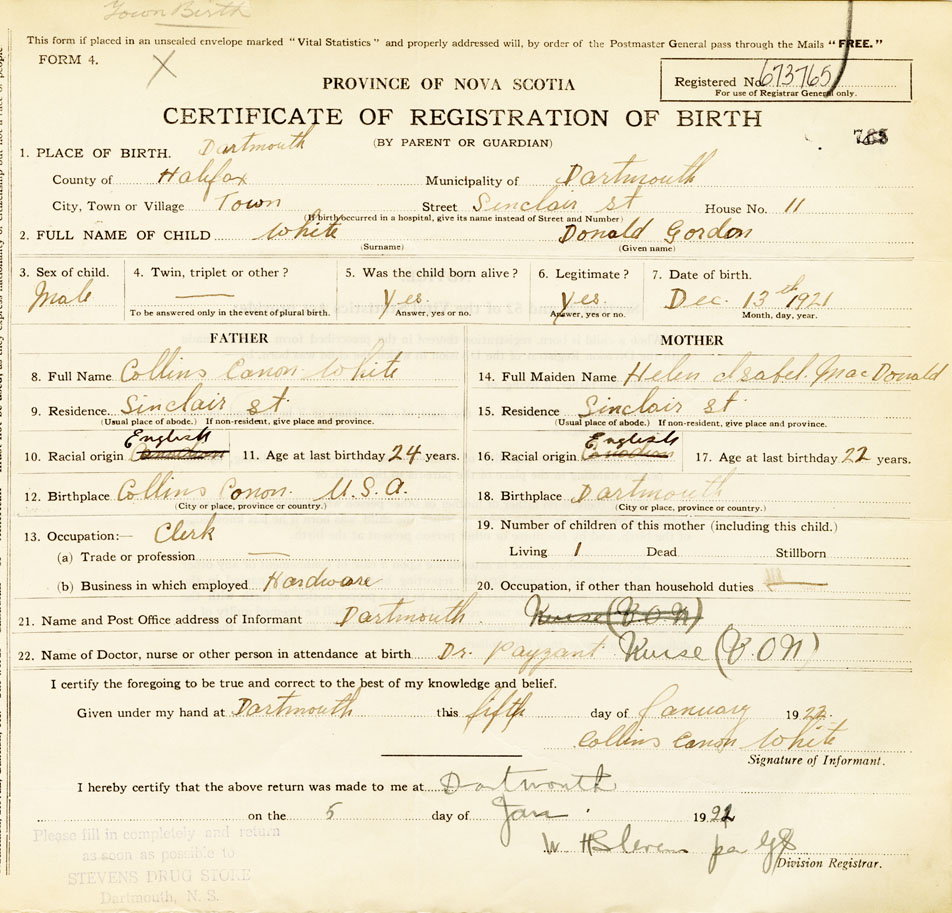 Town Birth
This form if placed in an unsealed envelope marked "Vital Statistics" and properly addressed will, by order of the Postmaster General pass through the Mails "FREE."
FORM 4.
X
PROVINCE OF NOVA SCOTIA
Registered No. 673765
For use of Registrar General only.
CERTIFICATE OF REGISTRATION OF BIRTH
(BY PARENT OR GUARDIAN)
1. PLACE OF BIRTH. Dartmouth
County of Halifax Municipality of Dartmouth
City, Town or Village Town Street Sinclair st House No. 11
(If birth occurred in a hospital, give its name instead of Street and Number)
2. FULL NAME OF CHILD White Donald Gordon
(Surname) (Given name)
3. Sex of child. 4. Twin, triplet or other? 5. Was the child born alive? 6. Legitimate? 7. Date of birth.
Male — Yes. Yes. Dec. 13th 1921
To be answered only in the event of plural birth. Answer, yes or no. Answer, yes or no. Month, day, year.
FATHER MOTHER
8. Full Name Collins Canon White 14. Full Maiden Name Helen Isabel MacDonald
9. Residence Sinclair st. 15. Residence Sinclair st.
(Usual place of abode.) If non-resident, give place and province. (Usual place of abode.) If non-resident, give place and province.
English English
10. Racial origin Canadian 11. Age at last birthday 24 years. 16. Racial origin Canadian 17. Age at last birthday 22 years.
12. Birthplace Collins Conon. U.S.A. 18. Birthplace Dartmouth
(City or place, province or country.) (City or place, province or country.)
13. Occupation:— Clerk 19. Number of children of this mother (including this child.)
(a) Trade or profession — Living 1 Dead Stillborn
(b) Business in which employed Hardware 20. Occupation, if other than household duties —
21. Name and Post Office address of Informant Dartmouth. Nurse (V.O.N)
22. Name of Doctor, nurse or other person in attendance at birth Dr. Payzant Nurse (V.O.N)
I certify the foregoing to be true and correct to the best of my knowledge and belief.
Given under my hand at Dartmouth this fifth day of January 1922.
Collins Canon White
Signature of Informant.
I hereby certify that the above return was made to me at Dartmouth
on the 5 day of Jan. 1922
W H Stevens per
Division Registrar.
Please fill in completely and return
as soon as possible to
STEVENS DRUG STORE
Dartmouth, N. S.